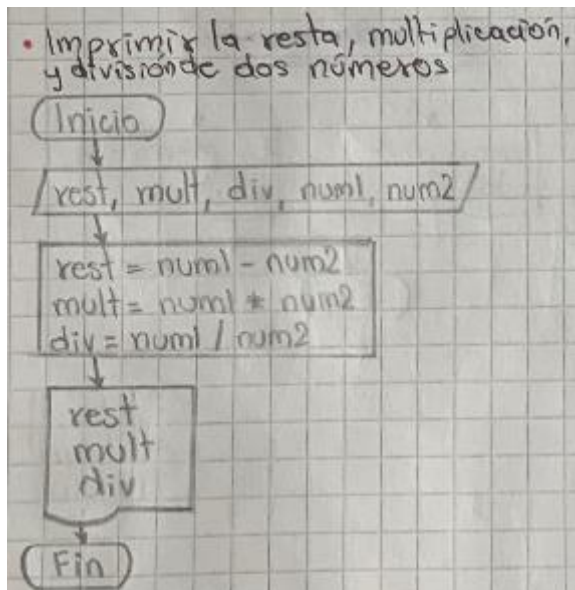 • Imprimir la resta, multiplicación,
y división de dos números
Inicio
rest, mult, div, num1, num2
rest = num1 - num2
mult = num1 * num2
div = num1 / num2
rest
mult
div
Fin